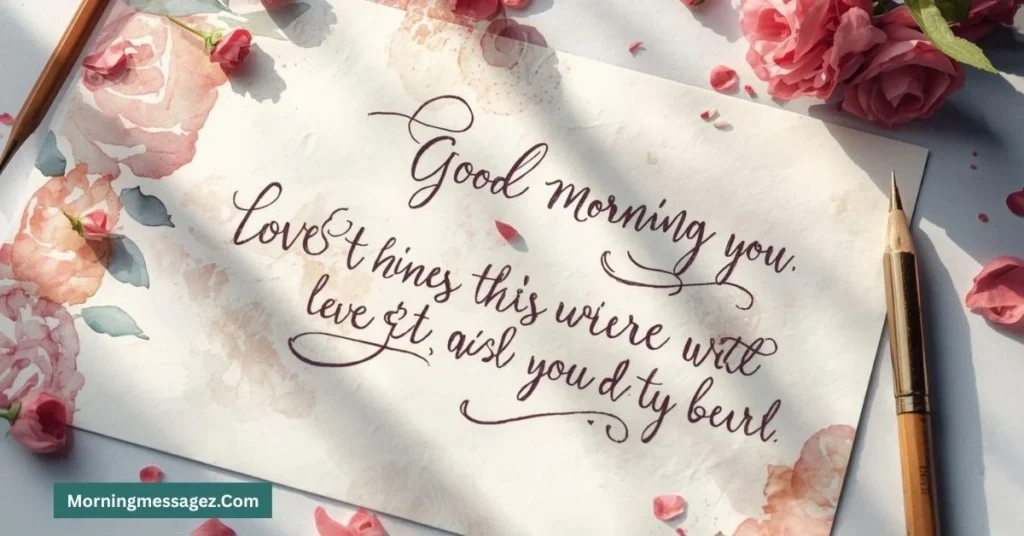 Good morning you.
Love & t hines this wiere witl
leve & t, aisl you d ty beurl.
Morningmessagez.Com